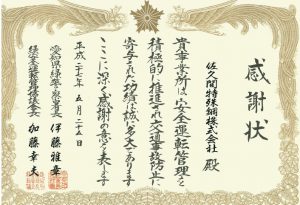 感謝状
佐久間特殊鋼株式会社 殿
貴事業所は安全運転管理を
積極的に推進され交通事故防止に
寄与された功績は誠に多大であります
ここに深く感謝の意を表します
平成二十七年 五月二十五日
愛知県緑警察署長 伊藤雅章
緑安全運転管理協議会長 加藤幸夫